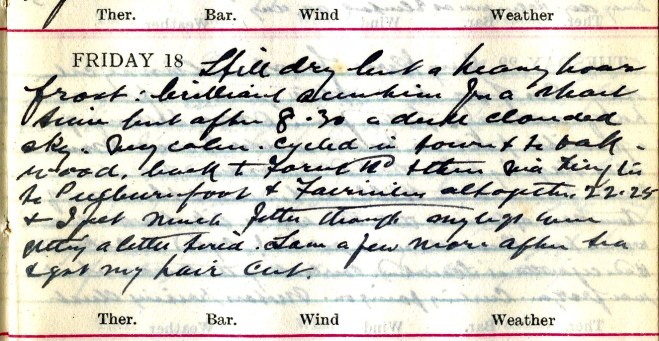 Ther. Bar. Wind Weather
FRIDAY 18 Still dry but a heavy hoar
frost: brilliant sunshine for a short
time but after 8.30 a dull clouded
sky. Very calm. cycled in town & to
wood, back to Rd & then via
to & altogether 22.25
& I felt much fitter though my legs were
getting a little tired. Saw a few more after tea
& got my hair cut.
Ther. Bar. Wind Weather